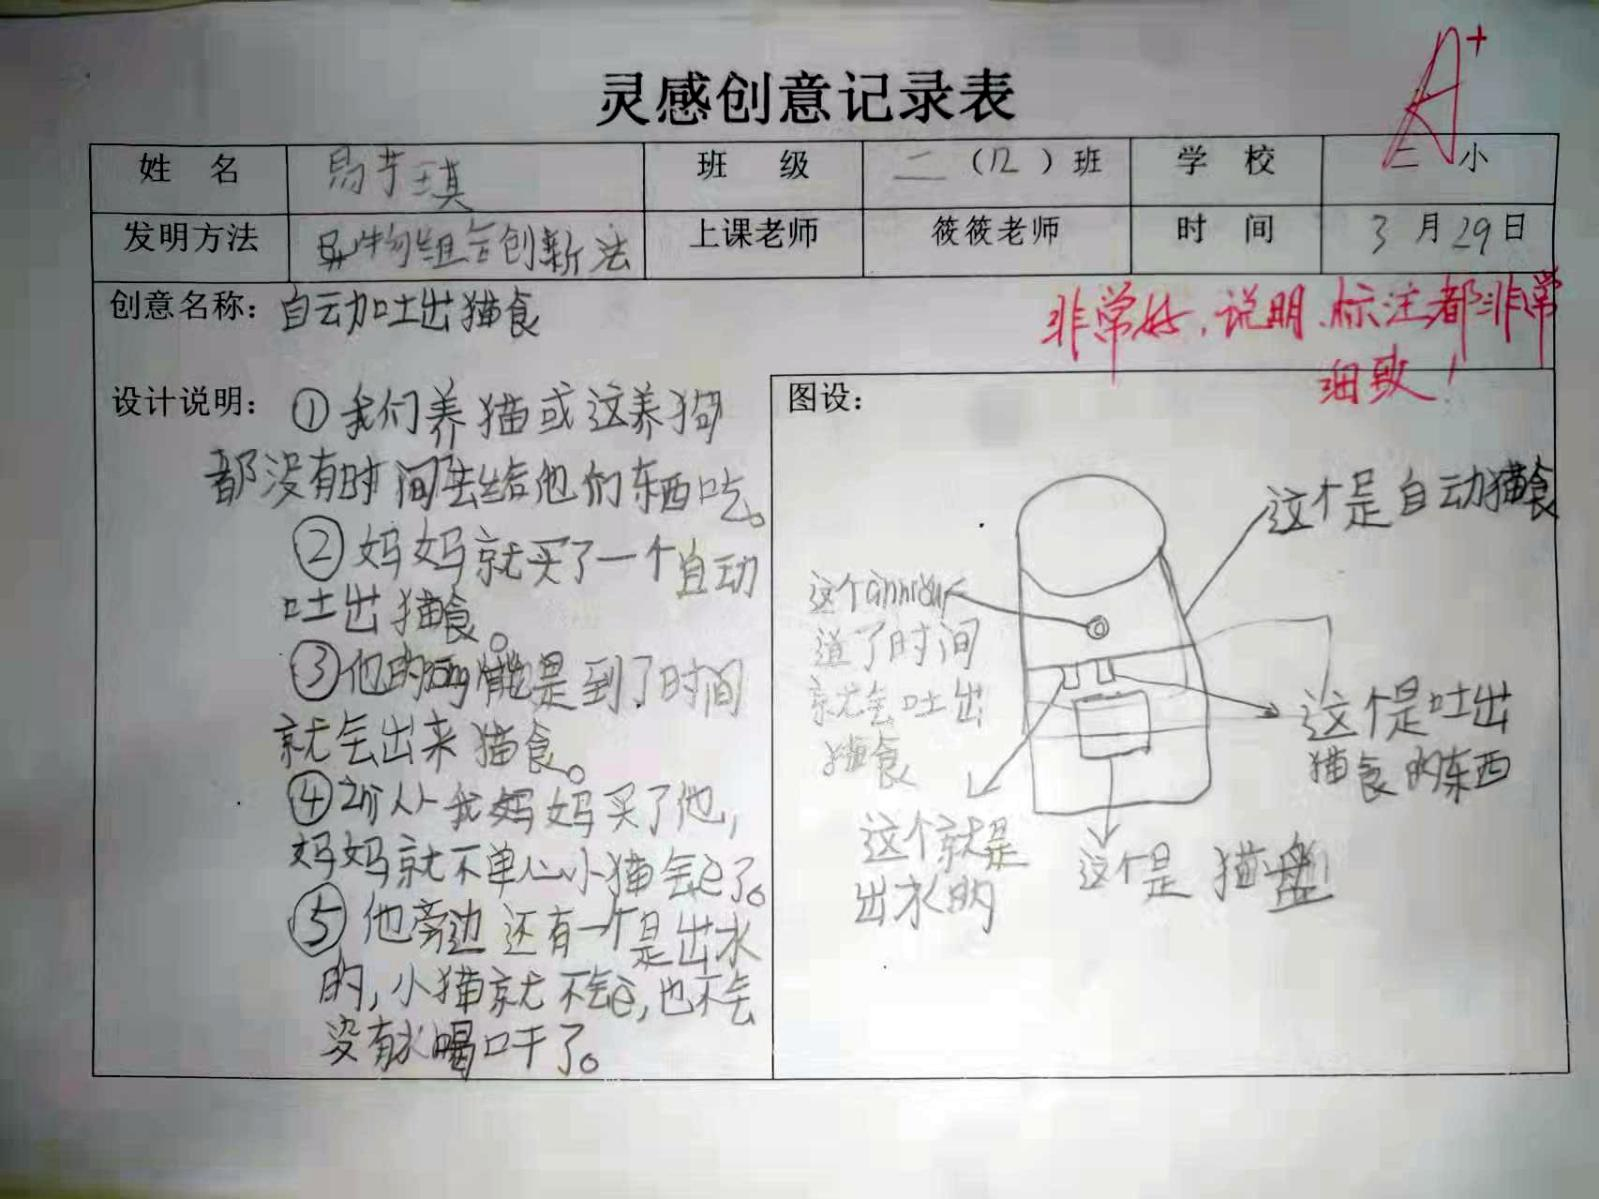 灵感创意记录表
A+
姓 名 易芋琪 班 级 二（12）班 学 校 二小
发明方法 异物组合创新法 上课老师 筱筱老师 时 间 3月29日
创意名称：自动吐出猫食
非常好、说明、标注都非常
细致！
设计说明：①我们养猫或这养狗
都没有时间去给他们东西吃。
②妈妈就买了一个自动
吐出猫食。
③他的能是到了时间
就会出来猫食。
④我妈妈买了他，
妈妈就不单心小猫会è了。
⑤他旁边还有一个是出水
的，小猫就不会è，也不会
没有水喝口干了。
图设：
这个是自动猫食
这个ànniǔ
道了时间
就会吐出
猫食
这个是吐出
猫食的东西
这个就是
出水的
这个是 猫盘